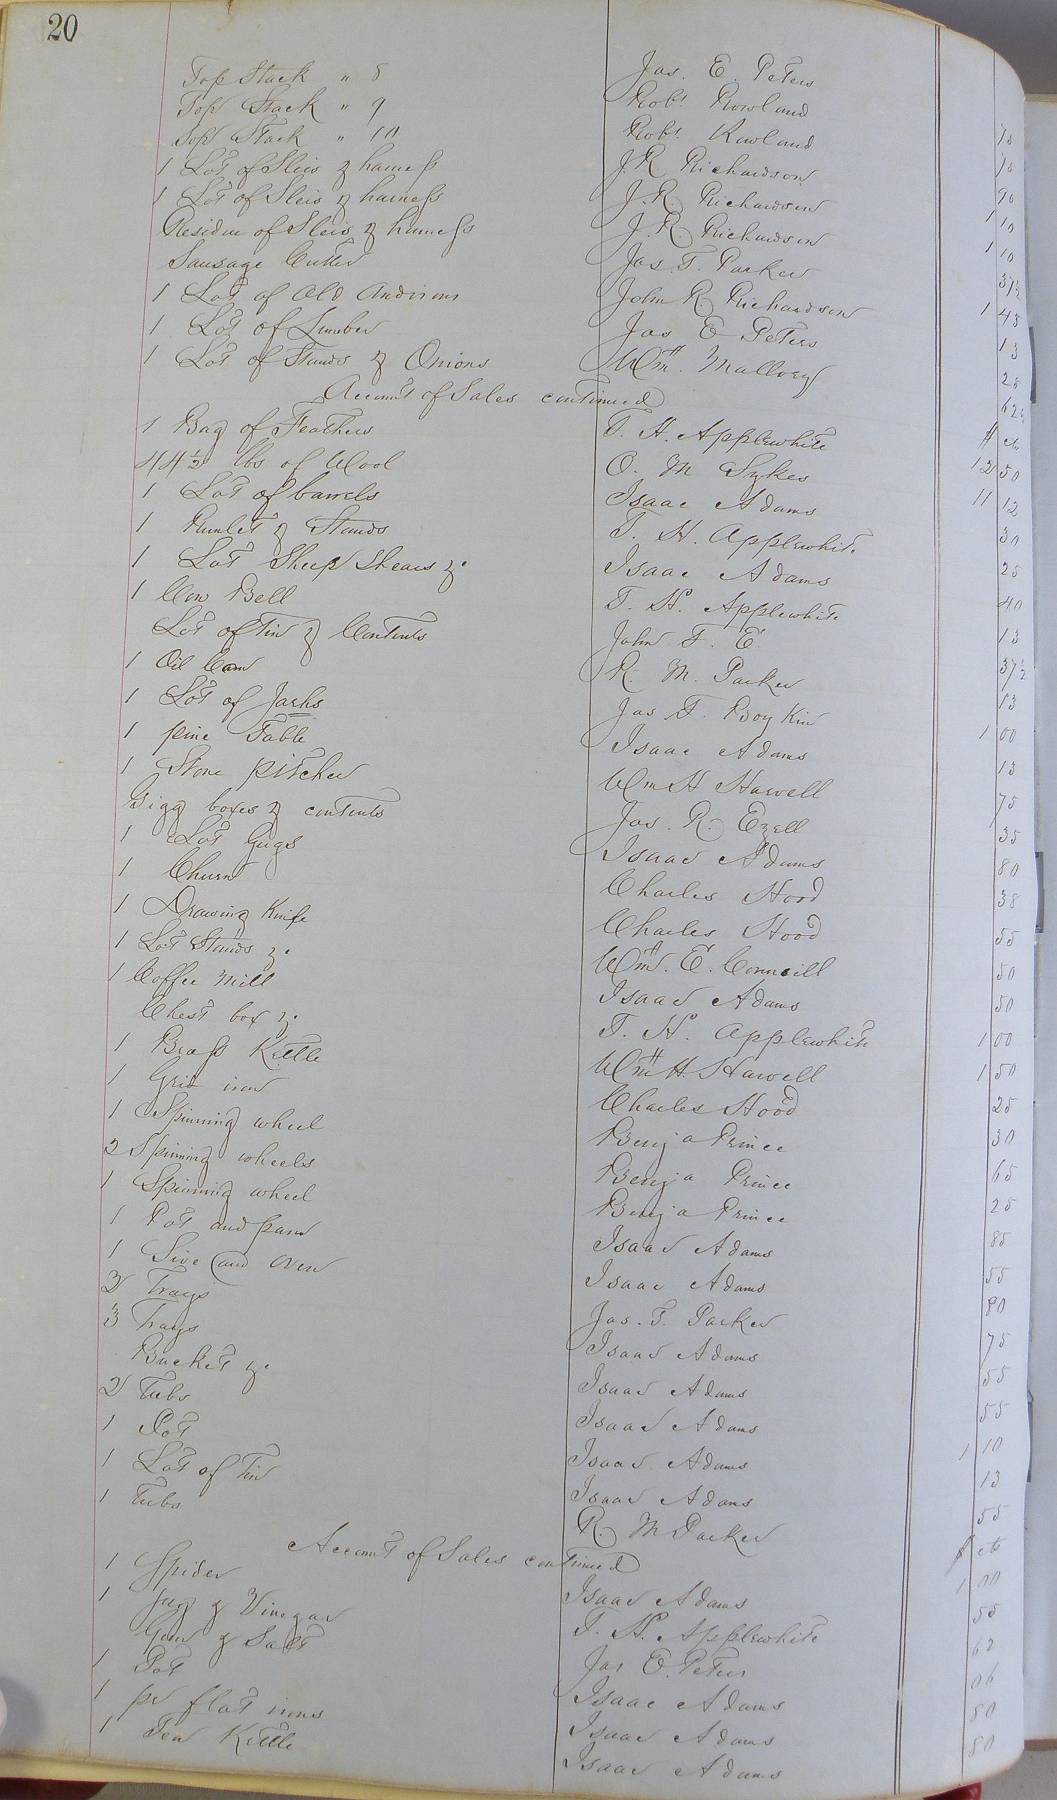 20
Top Stack " 8 Jas. E. Peters
Top Stack " 9 Robt Rowland
Top Stack " 10 Robt. Rowland 75
1 Lot of Sleis & harness J. R. Richardson 75
1 Lot of Sleis & harness J. R. Richardson 90
Residue of Sleis & harness J. R. Richardson 1 10
Sausage Cutter Jas T. Parker 1 10
1 Lot of Old Andirons John R. Richardson 37½
1 Lot of Lumber Jas E Peters 1 45
1 Lot of Stands & Onions Wm H. Mallory 13
Account of Sales continued 28
1 Bag of Feathers T. H. Applewhite 62½
44½ lbs of Wool O. M Sykes $ cts
1 Lot of barrels Isaac Adams 12 50
1 Rumlet & Stands T. H. Applewhite 11 12
1 Lot Sheep Shears &c Isaac Adams 30
1 Cow Bell T. H. Applewhite 25
Lot of Tin & Contents John T. E. 40
1 Oil Can R. M. Parker 13
1 Lot of Jarks Jas T. Boykin 37½
1 pine Table Isaac Adams 13
1 Stone pitcher Wm H Harvell 1 00
Gigg boxes & contents Jas. R. Ezell 13
1 Lot Gugs Isaac Adams 75
1 Churn Charles Hood 35
1 Drawing Knife Charles Hood 80
1 Lot Stands &c Wm H. E. Conncill 38
1 Coffee Mill Isaac Adams 55
Chest box &c T. H. Applewhite 50
1 Brass Kettle Wm H. Harvell 50
1 Grid iron Charles Hood 1 00
1 Spinning wheel Benja Prince 1 50
2 Spinning wheels Benja Prince 25
1 Spinning wheel Benja Prince 30
1 Pot and pan Isaac Adams 65
1 Sive and Oven Isaac Adams 25
2 Trays Jas. T. Parker 85
3 Trays Isaac Adams 55
Bucket &c Isaac Adams 80
2 Tubs Isaac Adams 75
1 Pot Isaac Adams 55
1 Lot of Tin Isaac Adams 55
1 Tubs R. M Parker 1 10
Account of Sales continued 13
1 Spider Isaac Adams 55
1 Jug & Vinegar T. H. Applewhite $ cts
Gum & Salt Jas E. Peters 1 00
1 Pot Isaac Adams 55
1 pr flat irons Isaac Adams 62
1 Tea Kettle Isaac Adams 06
80
80